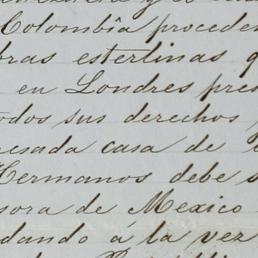 Colombia proceden
bras esterlinas q
en Londres pres
odos sus derechos
esada casa de
Hermanos debe s
sora de Mexico
dando á la vez